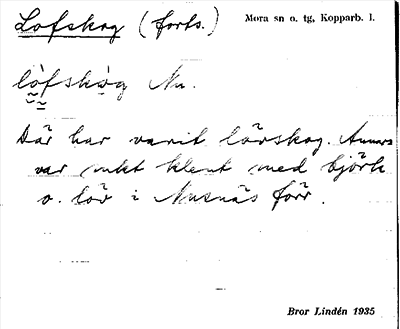 Lofskog (forts.)
Mora sn o. tg, Kopparb. l.
lòfskòg Nu.
Där har varit lövskog. Annars
var mkt klent med björk
o. löv i Nusnäs förr.
Bror Lindén 1935